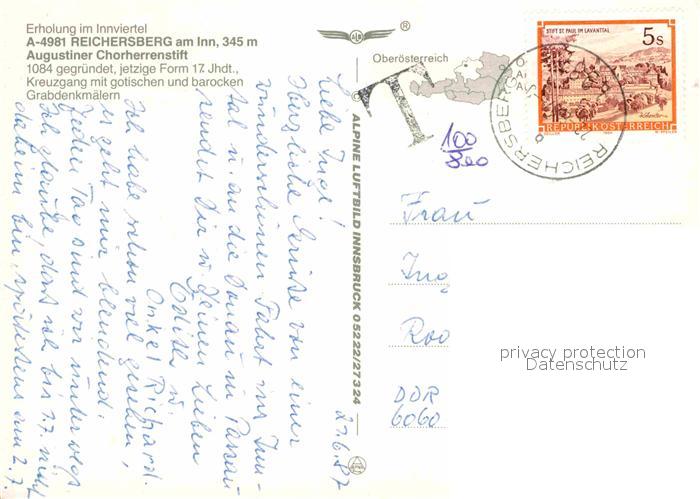 Erholung im Innviertel
A-4981 REICHERSBERG am Inn, 345 m
Augustiner Chorherrenstift
1084 gegründet, jetzige Form 17. Jhdt.,
Kreuzgang mit gotischen und barocken
Grabdenkmälern
®
Oberösterreich
T
100
STIFT ST. PAUL IM LAVANTTAL
5 s
REPUBLIK ÖSTERREICH
REICHERSBERG
© ALPINE LUFTBILD INNSBRUCK 05222/27324
21.6.87
Liebe Inge!
Herzliche Grüße von einer
wunderschönen Fahrt ins Inn-
tal u. an die Donau in Passau
sendet Dir u. Deinen Lieben
Edith u.
Onkel Richard.
Ich habe schon viel gesehen,
es geht mir blendend.
Jeden Tag sind wir unterwegs
Ich glaube, dass sie bis 1.7. nicht
daheim bin, spätestens am 2.7.
Frau
Ing
Roo
DDR
6060
privacy protection
Datenschutz